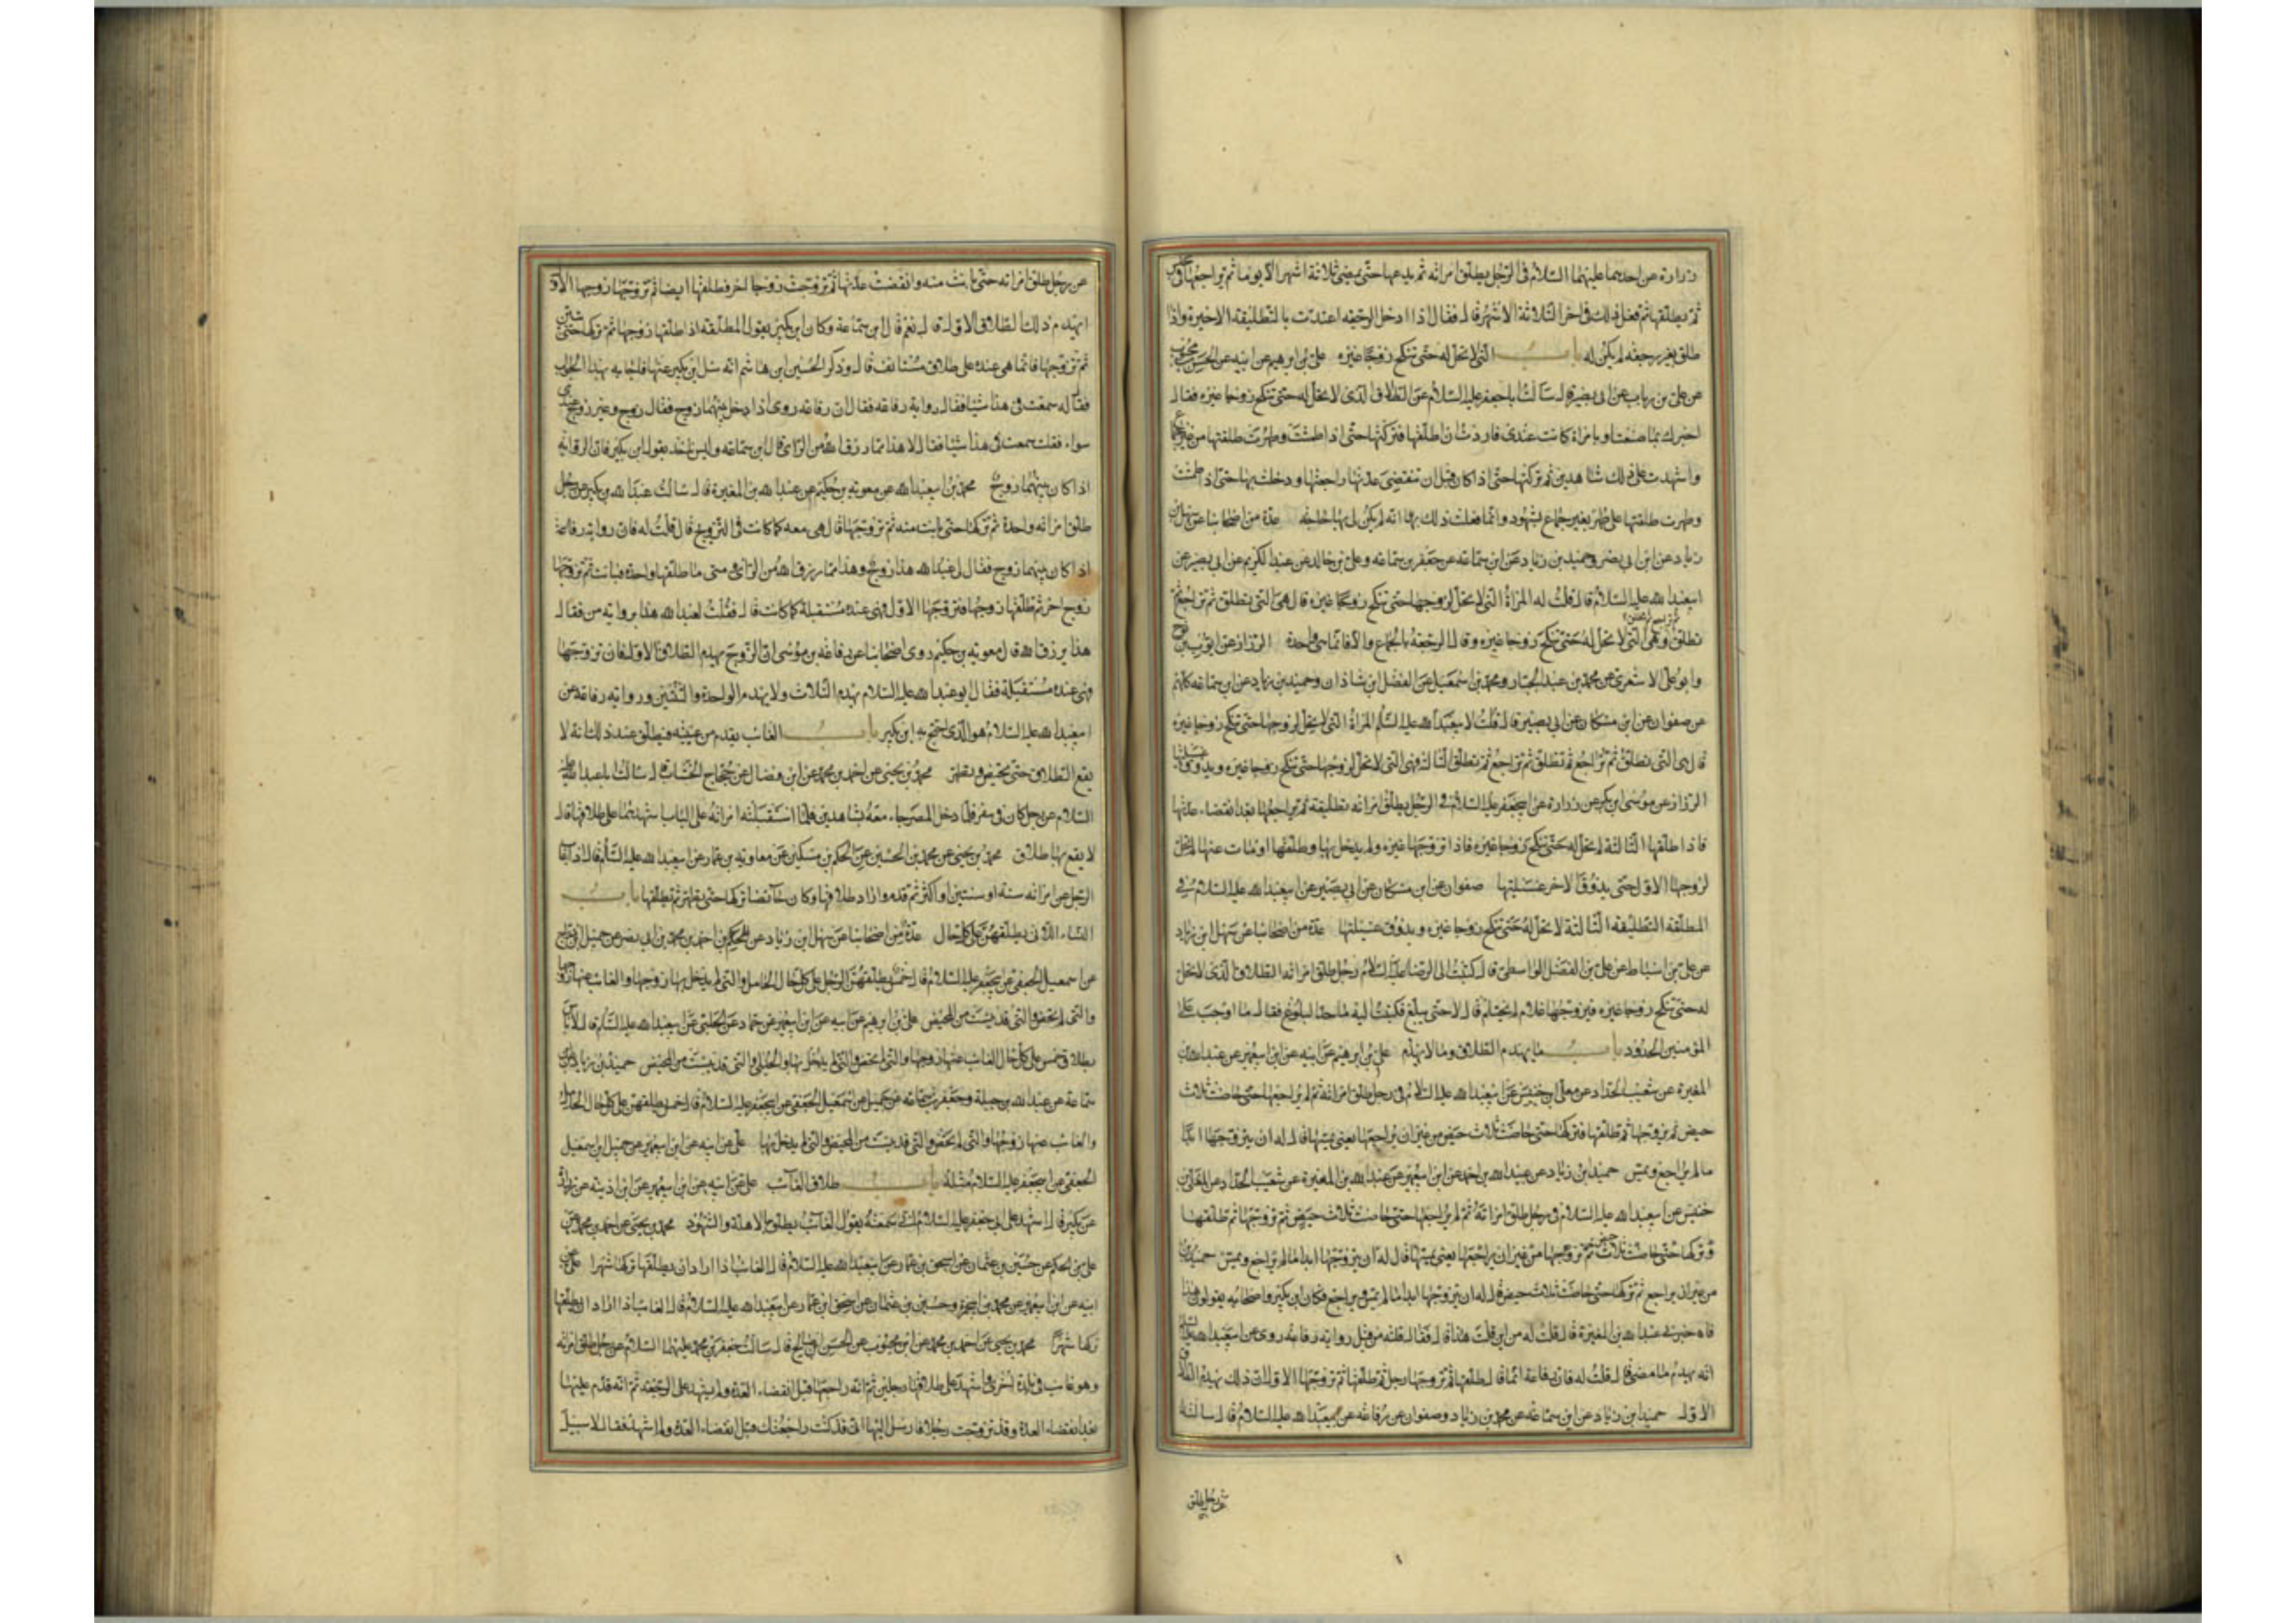 زرارة عن احدهما عليهما السلام في الرجل يطلق امراته ثم يدعها حتى يمضي ثلاثة اشهر الا يوما ثم يراجعها في مجلس
ثم يطلقها ثم فعل ذلك في اخر الثلاثة الاشهر قال فقال اذا ادخل الرجعة اعتدت بالتطليقة الاخيرة واذا
طلق بغير رجعة لم يكن له باب التي لا تحل له حتى تنكح زوجا غيره علي بن ابرهيم عن ابيه عن الحسن بن محبوب
عن علي بن رياب عن ابي بصير قال سالت ابا جعفر عليه السلام عن الطلاق الذي لا تحل له حتى تنكح زوجا غيره فقال
اخبرك بما صنعت بامراة كانت عندي فاردت ان اطلقها فتركتها حتى اذا طمثت وطهرت طلقتها من غير جماع
واشهدت على ذلك شاهدين ثم تركتها حتى اذا كان قبل ان تنقضي عدتها راجعتها ودخلت بها حتى اذا طمثت
وطهرت طلقتها على طهر بغير جماع بشهود وانما فعلت ذلك بها انه لم يكن لي بها حاجة عدة من اصحابنا عن سهل بن
زياد عن ابن ابي بصر وحميد بن زياد عن ابن سماعة عن جعفر بن سماعة وعلي بن خالد عن عبد الكريم عن ابي بصير عن
ابي عبد الله عليه السلام قال قلت له المراة التي لا تحل لزوجها حتى تنكح زوجا غيره قال هي التي تطلق ثم تراجع
تطلق وهي التي لا تحل له حتى تنكح زوجا غيره وقال الرجعة بالجماع والا فانما هي واحدة الرزاز عن ايوب بن نوح
وابو علي الاشعري عن محمد بن عبد الجبار ومحمد بن اسمعيل عن الفضل بن شاذان وحميد بن زياد عن ابن سماعة كلهم
عن صفوان عن ابن مسكان عن ابي بصير قال قلت لابي عبد الله عليه السلم المراة التي لا تحل لزوجها حتى تنكح زوجا غيره
قال هي التي تطلق ثم تراجع ثم تطلق ثم تراجع ثم تطلق الثالثة فهي التي لا تحل لزوجها حتى تنكح زوجا غيره ويذوق عسيلتها
الرزاز عن موسى بن بكر عن زرارة عن ابي جعفر عليه السلام في الرجل يطلق امراته تطليقة ثم يراجعها بعد انقضاء عدتها
فاذا طلقها الثالثة لم تحل له حتى تنكح زوجا غيره فاذا تزوجها غيره ولم يدخل بها وطلقها او مات عنها لم تحل
لزوجها الاول حتى يذوق الاخر عسيلتها صفوان عن ابن مسكان عن ابي بصير عن ابي عبد الله عليه السلام في
المطلقة التطليقة الثالثة لا تحل له حتى تنكح زوجا غيره ويذوق عسيلتها عدة من اصحابنا عن سهل بن زياد
عن علي بن اسباط عن علي بن الفضل الواسطي قال كتبت الى الرضا عليه السلام رجل طلق امراته الطلاق الذي لا تحل
له حتى تنكح زوجا غيره فيزوجها غلام لم يحتلم قال لا حتى يبلغ فكتبت اليه ما حد البلوغ فقال ما اوجب على
المؤمنين الحدود باب ما يهدم الطلاق وما لا يهدم علي بن ابرهيم عن ابيه عن ابن ابي عمير عن عبد الله بن
المغيرة عن شعيب الحداد عن معلى بن خنيس عن ابي عبد الله عليه السلام في رجل طلق امراته ثم لم يراجعها حتى حاضت ثلاث
حيض ثم تزوجها ثم طلقها فتركها حتى حاضت ثلاث حيض من غير ان يراجعها يعني يمسها قال له ان يتزوجها ابدا
ما لم يراجع ويمس حميد بن زياد عن عبيد الله بن احمد عن ابن ابي عمير عن عبد الله بن المغيرة عن شعيب الحداد عن المعلى بن
خنيس عن ابي عبد الله عليه السلام في رجل طلق امراته ثم لم يراجعها حتى حاضت ثلاث حيض ثم تزوجها ثم طلقها
فتركها حتى حاضت ثلاث حيض ثم تزوجها من غير ان يراجعها يعني يمسها قال له ان يتزوجها ابدا ما لم يراجع ويمس حميد بن
من غير ان يراجع ثم تركها حتى حاضت ثلاث حيض قال له ان يتزوجها ابدا ما لم يمس ويراجع فكان ابن بكير واصحابه يقولون هذا
فاخبرني عبد الله بن المغيرة قال قلت له من اين قلت هذا قال فقال قلته من قبل رواية رفاعة روى عن ابي عبد الله عليه السلم
انه يهدم ما مضى قال قلت له فان رفاعة انما قال طلقها ثم تزوجها رجل ثم طلقها ثم تزوجها الاول ان ذلك يهدم الطلاق
الاول حميد بن زياد عن ابن سماعة عن محمد بن زياد وصفوان عن رفاعة عن ابي عبد الله عليه السلام قال سالته
عن رجل طلق
عن رجل طلق امراته حتى بانت منه وانقضت عدتها ثم تزوجت زوجا اخر فطلقها ايضا ثم تزوجها زوجها الاول
ايهدم ذلك الطلاق الاول قال نعم قال ابن سماعة وكان ابن بكير يقول المطلقة اذا طلقها زوجها ثم تركها حتى تبين
ثم تزوجها فانما هي عنده على طلاق مستانف قال وذكر الحسين بن هاشم انه سال ابن بكير عنها فاجابه بهذا الجواب
فقال له سمعت في هذا شيئا فقال رواية رفاعة فقال ان رفاعة روى اذا دخل بينهما زوج فقال زوج وغير زوج عندي
سواء فقلت سمعت في هذا شيئا فقال لا هذا مما رزق الله من الراي قال ابن سماعة وليس احد يقول بقول ابن بكير فان الرواية
اذا كان بينهما زوج محمد بن ابي عبد الله عن معوية بن حكيم عن عبد الله بن المغيرة قال سالت عبد الله بن بكير عن رجل
طلق امراته واحدة ثم تركها حتى بانت منه ثم تزوجها قال هي معه كما كانت في التزويج قال قلت له فان رواية رفاعة
اذا كان بينهما زوج فقال لي عبد الله هذا زوج وهذا مما رزق الله من الراي ومتى ما طلقها واحدة فبانت ثم تزوجها
زوج اخر ثم طلقها زوجها فتزوجها الاول فهي عنده مستقبلة كما كانت قال فقلت لعبد الله هذا برواية من فقال
هذا مما رزق الله قال معوية بن حكيم روى اصحابنا عن رفاعة بن موسى ان الزوج يهدم الطلاق الاول فان تزوجها
فهي عنده مستقبلة فقال ابو عبد الله عليه السلام يهدم الثلاث ولا يهدم الواحدة والثنتين ورواية رفاعة عن
ابي عبد الله عليه السلام هو الذي احتج به ابن بكير باب الغائب يقدم من غيبته فيطلق عند ذلك انه لا
يقع الطلاق حتى تحيض وتطهر محمد بن يحيى عن احمد بن محمد عن ابن فضال عن حجاج الخشاب قال سالت ابا عبد الله عليه
السلام عن رجل كان في سفر فلما دخل المصر جاء معه بشاهدين فلما استقبلته امراته على الباب اشهدهما على طلاقها قال
لا يقع بها طلاق محمد بن يحيى عن محمد بن الحسين عن الحكم بن مسكين عن معاوية بن عمار عن ابي عبد الله عليه السلم قال اذا غاب
الرجل عن امراته سنة او سنتين او اكثر ثم قدم واراد طلاقها وكانت حائضا تركها حتى تطهر ثم يطلقها باب
النساء اللاتي يطلقهن على كل حال عدة من اصحابنا عن سهل بن زياد عن احمد بن محمد بن ابي بصر عن جميل بن دراج
عن اسمعيل الجعفي عن ابي جعفر عليه السلام قال خمس يطلقهن الرجل على كل حال الحامل والتي لم يدخل بها زوجها والغائب عنها زوجها
والتي لم تحض والتي قد يئست من المحيض علي بن ابرهيم عن ابيه عن ابن ابي عمير عن حماد عن الحلبي عن ابي عبد الله عليه السلم قال لا باس
بطلاق خمس على كل حال الغائب عنها زوجها والتي لم تحض والتي لم يدخل بها والحبلى والتي قد يئست من المحيض حميد بن زياد عن ابن
سماعة عن عبد الله بن جبلة وجعفر بن سماعة عن جميل عن اسمعيل الجعفي عن ابي جعفر عليه السلام قال خمس يطلقهن على كل حال الحامل
والغائب عنها زوجها والتي لم تحض والتي قد يئست من المحيض والتي لم يدخل بها علي عن ابيه عن ابن ابي عمير عن جميل عن اسمعيل
الجعفي عن ابي جعفر عليه السلام مثله باب طلاق الغائب علي عن ابيه عن ابن ابي عمير عن ابن اذينة عن زرارة
عن بكير قال اشهد على ابي جعفر عليه السلام اني سمعته يقول الغائب يطلق بالاهلة والشهور محمد بن يحيى عن احمد بن محمد عن
علي بن الحكم عن حسين بن عثمان عن اسحق بن عمار عن ابي عبد الله عليه السلام قال الغائب اذا اراد ان يطلقها تركها شهرا علي عن
ابيه عن ابن ابي عمير عن محمد بن ابي حمزة وحسين بن عثمان عن اسحق بن عمار عن ابي عبد الله عليه السلام قال الغائب اذا اراد ان يطلقها
تركها شهرا محمد بن يحيى عن احمد بن محمد عن ابن محبوب عن الحسن بن صالح قال سالت جعفر بن محمد عليهما السلام عن رجل طلق امراته
وهو غائب في بلدة اخرى واشهد على طلاقها رجلين ثم انه راجعها قبل انقضاء العدة ولم يشهد على الرجعة ثم انه قدم عليها
بعد انقضاء العدة وقد تزوجت رجلا فارسل اليها اني قد كنت راجعتك قبل انقضاء العدة ولم اشهد فقال لا سبيل